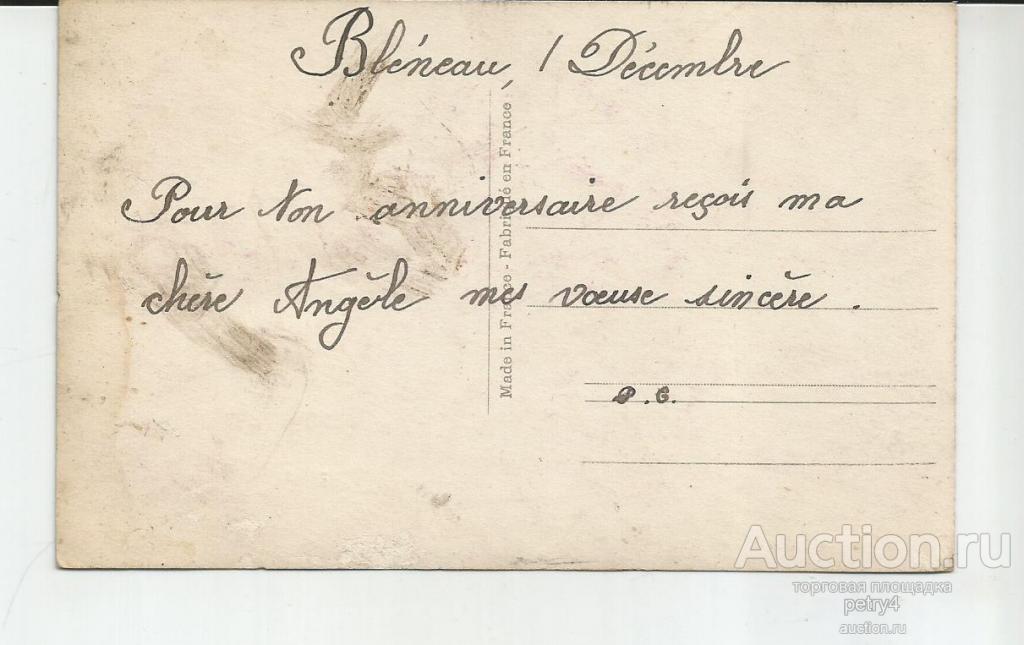 Bléneau, 1 Décembre
Pour ton anniversaire reçois ma
chère Angèle mes vœuse sincère.
P.C.
Made in France - Fabriqué en France
Auction.ru
торговая площадка
petry4
auction.ru